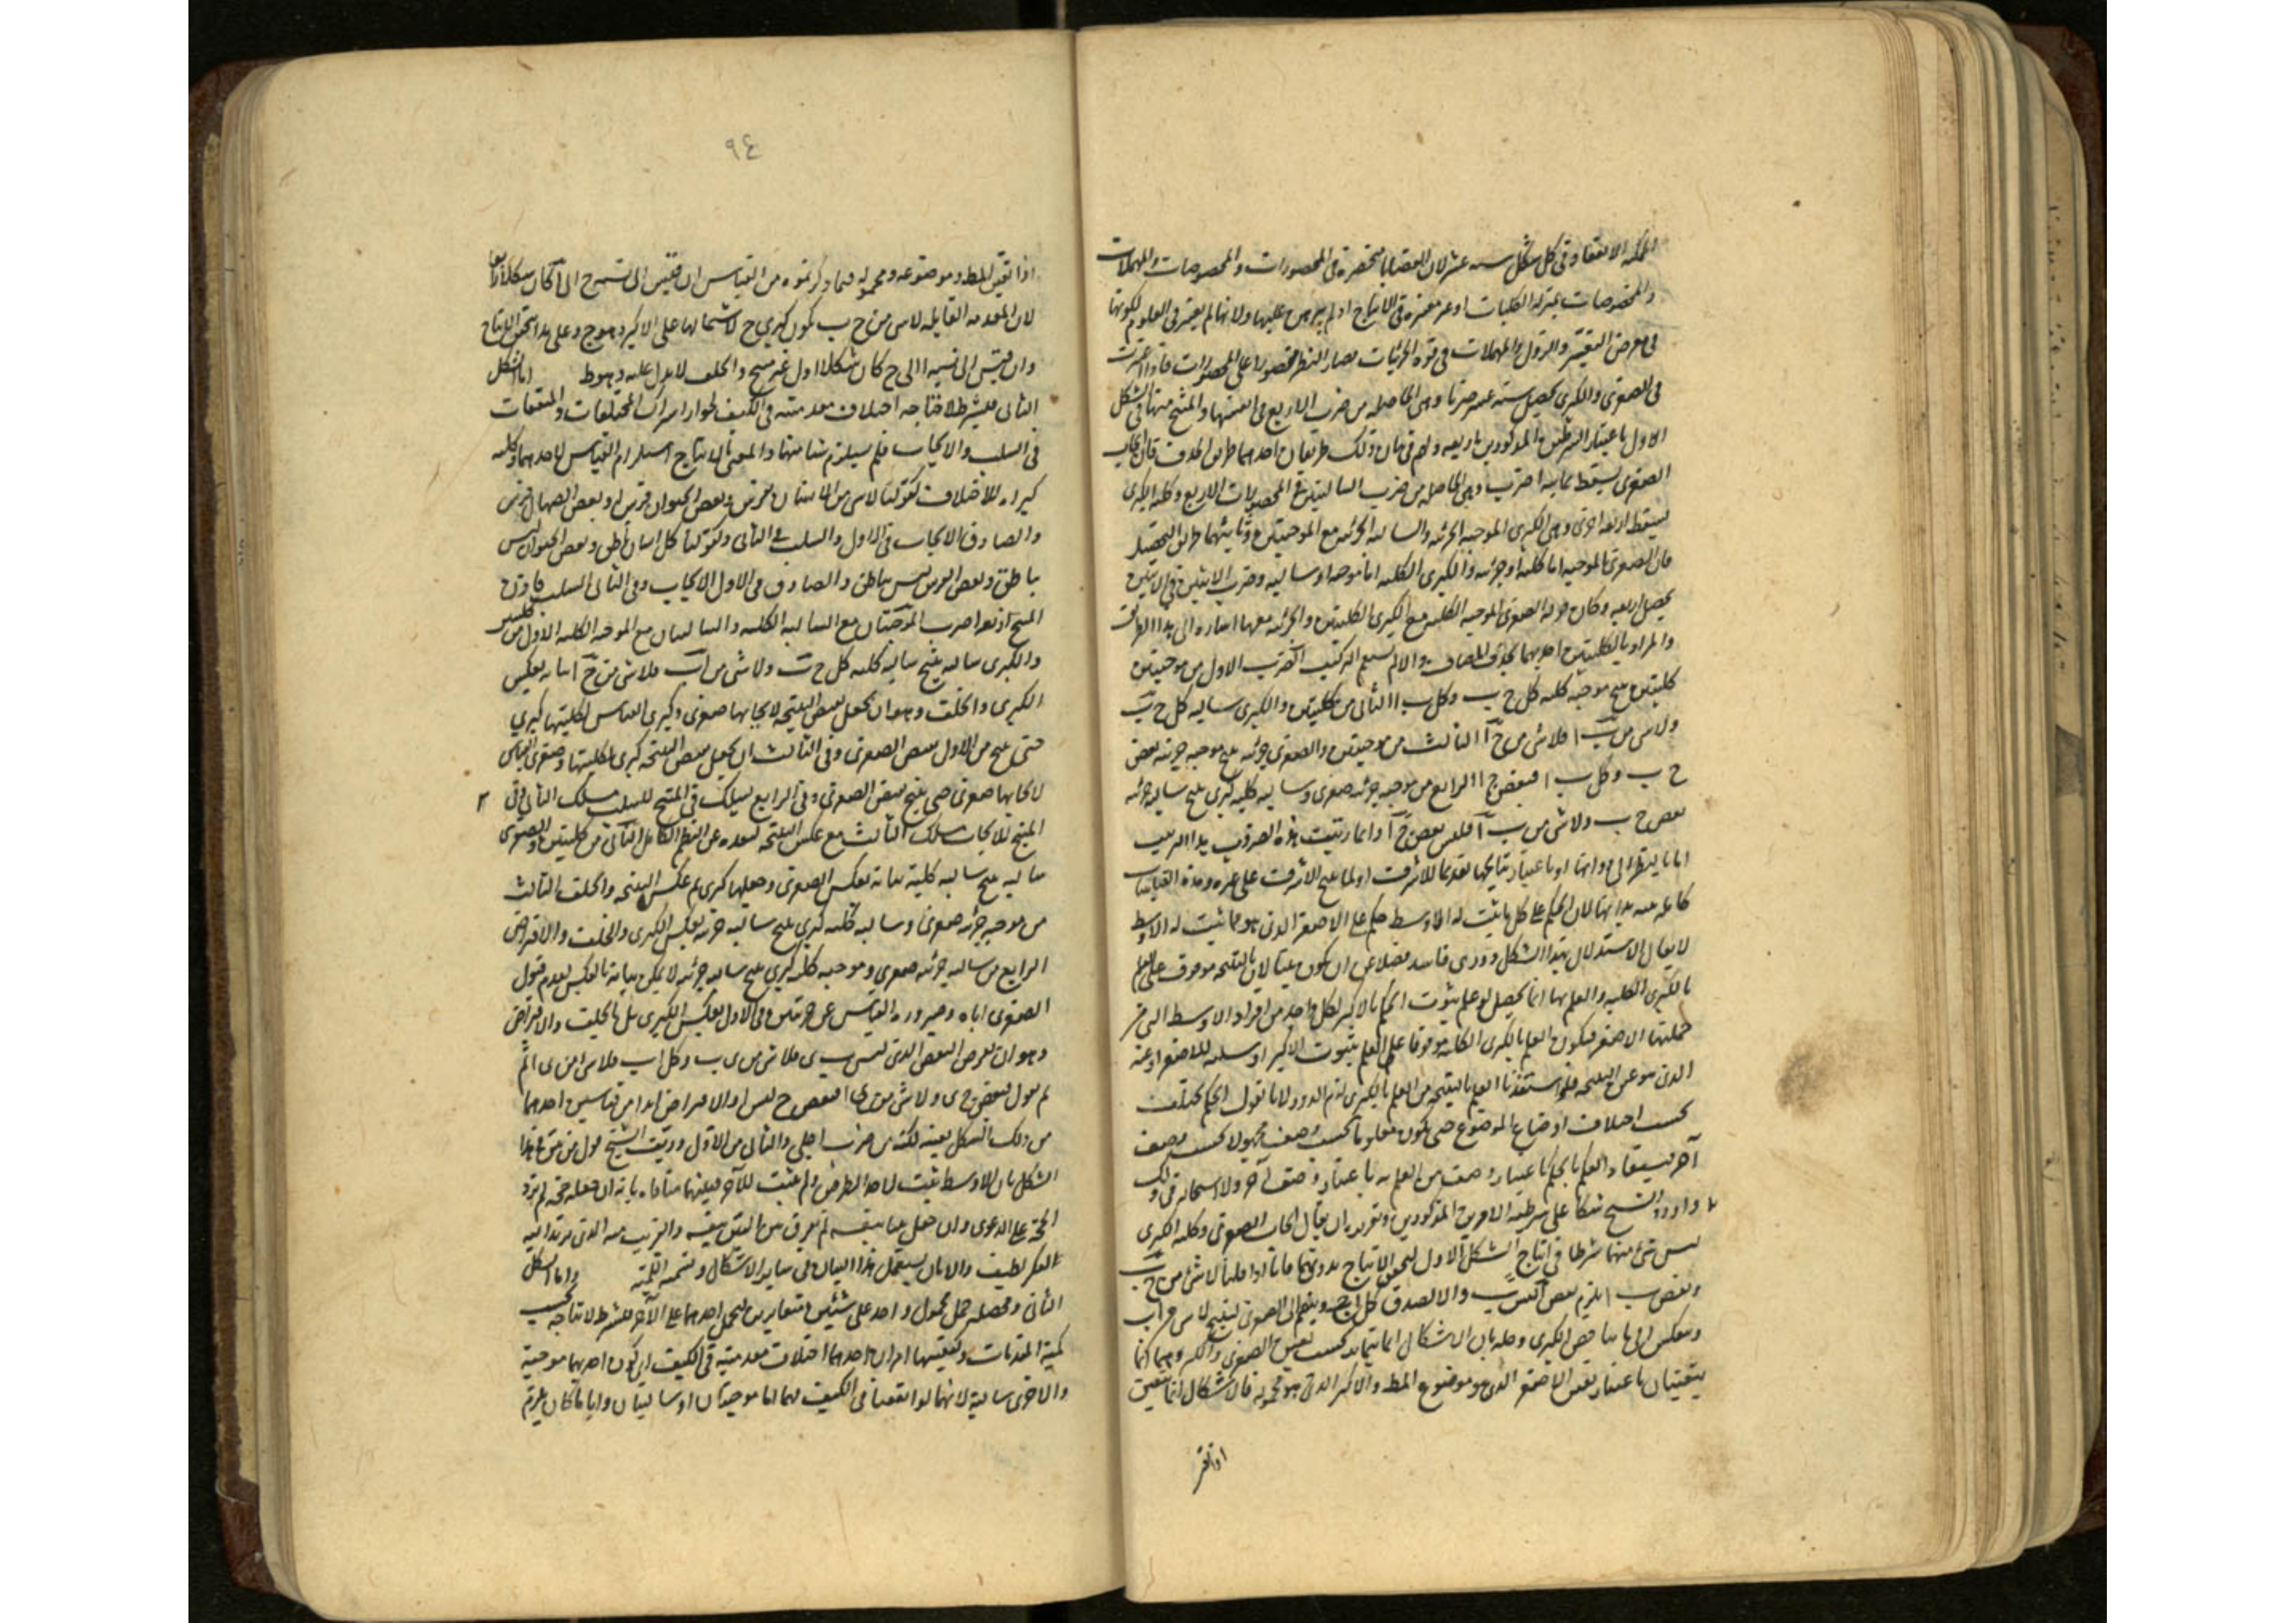 الممكنة الانعقاد في كل شكل ستة عشر لان القضايا منحصرة في المحصورات والمخصوصات والمهملات
والمخصوصات بمنزلة الكليات او غير معتبرة في الانتاج اذ لم يبرهن عليها ولانها لم يعتبر في العلوم لكونها
في معرض التغير والزوال والمهملات في قوة الجزئيات فصار النظر مقصورا على المحصورات فاذا اعتبرت
في الصغرى والكبرى يحصل ستة عشر ضربا وهى الحاصلة من ضرب الاربع في نفسها والمنتج منها في الشكل
الاول باعتبار الشرطين المذكورين اربعة ولهم في بيان ذلك طريقان احدهما طريق الحذف فان ايجاب
الصغرى يسقط ثمانية اضرب وهى الحاصلة من ضرب السالبتين في المحصورات الاربع وكلية الكبرى
يسقط اربعة اخرى وهى الكبرى الموجبة الجزئية والسالبة الجزئية مع الموجبتين وثانيهما طريق التحصيل
فان الصغرى الموجبة اما كلية او جزئية والكبرى الكلية اما موجبة او سالبة وضرب الاثنين في الاثنين
يحصل اربعة وكان قوله الصغرى الموجبة الكلية مع الكبرى الكليتين والجزئية معهما اشارة الى هذا الطريق
والمراد بالكليتين احديهما بحذف المضاف والا لم يستقم التركيب الضرب الاول من موجبتين
كليتين ينتج موجبة كلية كل ج ب وكل ب ا الثاني من كليتين والكبرى سالبة كل ج ب
ولا شى من ب ا فلا شى من ج ا الثالث من موجبتين والصغرى جزئية ينتج موجبة جزئية بعض
ج ب وكل ب ا فبعض ج ا الرابع من موجبة جزئية صغرى وسالبة كلية كبرى ينتج سالبة جزئية
بعض ج ب ولا شى من ب ا فليس بعض ج ا وانما رتبت هذه الضروب هذا الترتيب
اما بالنظر الى ذواتها او باعتبار نتايجها تقديما للاشرف او لما ينتج الاشرف على غيره وهذه القياسات
كاملة بينة بذاتها لان الحكم على كل ما ثبت له الاوسط حكم على الاصغر الذى هو مما ثبت له الاوسط
لا يقال الاستدلال بهذا الشكل دورى فاسد فضلا عن ان يكون بينا لان النتيجة موقوفة على العلم
بالكبرى الكلية والعلم بها انما يحصل لو علم ثبوت الحكم بالاكبر لكل واحد من افراد الاوسط التى من
جملتها الاصغر فيكون العلم بالكبرى الكلية موقوفا على العلم بثبوت الاكبر او سلبه للاصغر او عنه
الذى هو عين النتيجة فلو استفدنا العلم بالنتيجة من العلم بالكبرى لزم الدور لانا نقول الحكم يختلف
بحسب اختلاف اوضاع الموضوع حتى يكون معلوما بحسب وصف مجهولا بحسب وصف
آخر فيستفاد العلم بالحكم باعتبار وصف من العلم به باعتبار وصف آخر ولا استحالة في ذلك
واورد الشيخ شكا على شرطية الامرين المذكورين وتقريره ان يقال ايجاب الصغرى وكلية الكبرى
ليس شئ منهما شرطا في انتاج الشكل الاول لتحقق الانتاج بدونهما فانا اذا قلنا لا شئ من ج ب
وبعض ب ا يلزم بعض ا ليس ج والا لصدق كل ا ج وينضم الى الصغرى لينتج لا شى من ا ب
وينعكس الى ما يناقض الكبرى وحله بان الاشكال انما يتمايز بحسب تعين الصغرى والكبرى وهما انما
يتعينان باعتبار تعين الاصغر الذى هو موضوع المط والاكبر الذى هو محموله فالاشكال انما تتعين
اذا تعين
٩٤
اذا تعين المط وموضوعه ومحموله فما ذكرتموه من القياس ان قيس الى نتيجة ج ا كان شكلا رابعا
لان المقدمة القايلة لا شى من ج ب يكون كبرى ح لاشتمالها على الاكبر وهو ج وعلى هذا يتحقق الانتاج
وان قيس الى نسبة ا الى ج كان شكلا اول غير منتج والخلف لا يدل عليه وهو ط اما الشكل
الثانى فيشترط لانتاجه اختلاف مقدمتيه في الكيف لجواز اشتراك المختلفات والمتفقات
في السلب والايجاب فلم يستلزم شيا منهما والمعنى بالانتاج استلزام القياس لاحدهما وكلية
كبراه للاختلاف كقولنا لا شى من الانسان بفرس وبعض الحيوان فرس او بعض الصهال فرس
والصادق الايجاب في الاول والسلب في الثانى وكقولنا كل انسان ناطق وبعض الحيوان ليس
بناطق وبعض الفرس ليس بناطق والصادق في الاول الايجاب وفى الثانى السلب فاذن
المنتج اربعة اضرب الموجبتان مع السالبة الكلية والسالبتان مع الموجبة الكلية الاول من كليتين
والكبرى سالبة ينتج سالبة كلية كل ج ب ولا شى من ا ب فلا شى من ج ا بيانه بعكس
الكبرى والخلف وهو ان يجعل نقيض النتيجة لايجابها صغرى وكبرى القياس لكليتها كبرى
حتى ينتج من الاول نقيض الصغرى وفى الثالث ان يجعل نقيض النتيجة كبرى لكليتها وصغرى القياس
لايجابها صغرى حتى ينتج نقيض الصغرى وفى الرابع يسلك في المنتج للسلب مسلك الثانى وفى ٢
المنتج للايجاب مسلك الثالث مع عكس النتيجة لبعده عن النظم الكامل الثانى من كليتين والصغرى
سالبة ينتج سالبة كلية بيانه بعكس الصغرى وجعلها كبرى ثم عكس النتيجة والخلف الثالث
من موجبة جزئية صغرى وسالبة كلية كبرى ينتج سالبة جزئية بعكس الكبرى والخلف والافتراض
الرابع من سالبة جزئية صغرى وموجبة كلية كبرى ينتج سالبة جزئية لا يمكن بيانه بالعكس لعدم قبول
الصغرى اياه وصيرورة القياس عن جزئيتين في الاول بعكس الكبرى بل بالخلف والافتراض
وهو ان يفرض البعض الذى ليس ب ى فلا شى من ى ب وكل ا ب فلا شى من ى ا ثم
نقول بعض ج ى ولا شى من ى ا فبعض ج ليس ا والافتراض ابدا من قياسين احدهما
من ذلك الشكل بعينه لكنه من ضرب اجلى والثانى من الاول وزيف الشيخ قول من بين هذا
الشكل بان الاوسط ثبت لاحد الطرفين ولم يثبت للآخر فبينهما منافاة بانه ان جعله حجة لم يزد
الحجة على الدعوى وان جعل بينا بنفسه لم يفرق بين البين بنفسه والقريب منه الذى يرتد اليه
الفكر لطيف والامام يستعمل هذا البيان في ساير الاشكال وتسميه اللمية واما الشكل
الثانى ومحصله حمل محمول واحد على شيئين متغايرين ليحمل احدهما على الآخر فيشترط لانتاجه بحسب
كمية المقدمات وكيفيتها امران احدهما اختلاف مقدمتيه في الكيف اى يكون احديهما موجبة
والاخرى سالبة لانهما لو اتفقتا في الكيف فهما اما موجبتان او سالبتان وايا ما كان يلزم